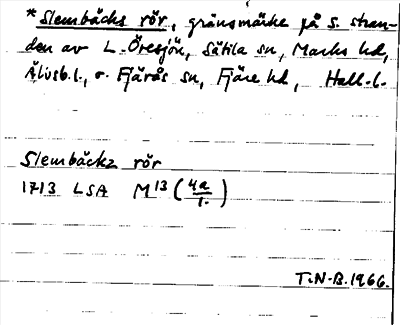 *Slembäcks rör, gränsmärke på S. stran-
den av L. Öresjön, Sätila sn, Marks hd,
Älvsb. l., o. Fjärås sn, Fjäre hd, Hall. l.
Slembäckz rör
1713 LSA M 13 (4a/1.)
T.N-B. 1966.